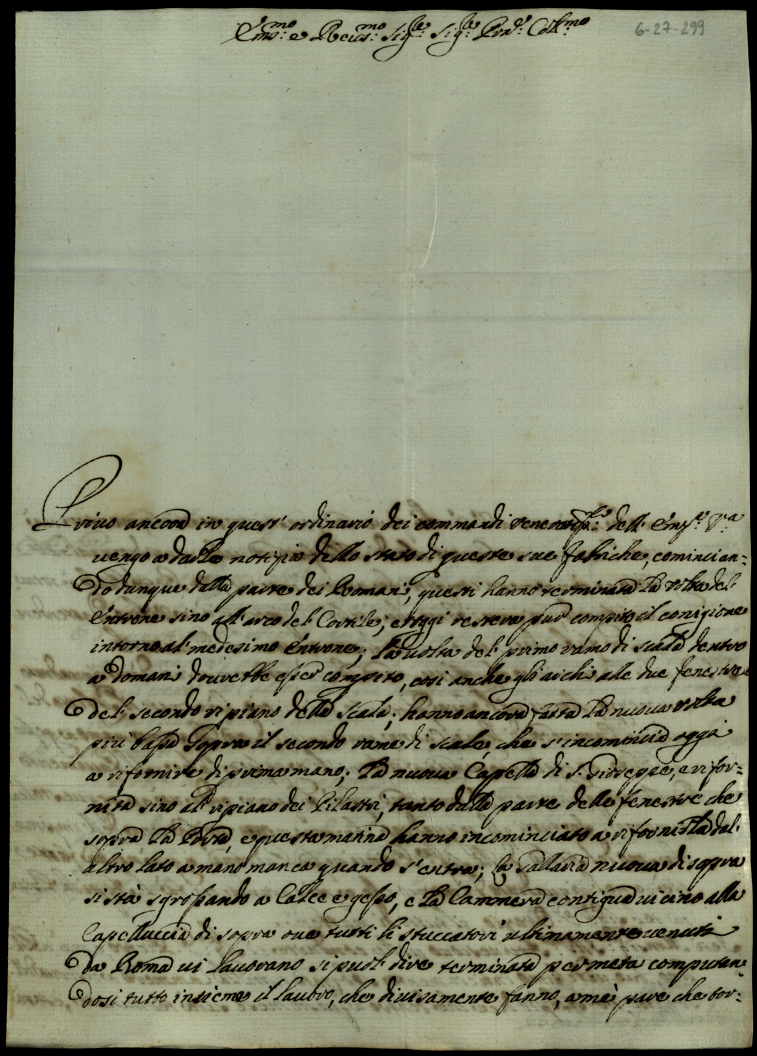 Em.mo e Reu.mo Sig.re Sig.re Pad.e Coll.mo
6-27-299
Privo ancora in quest' ordinario dei commandi veneratis.mi dell' Em.za V.ra
vengo a darle notizia dello stato di queste sue fabriche, comincian=
do dunque dalla parte dei Romani, questi hanno terminata la volta del'
entrone sino all'arco del Cortile; e oggi restera pur compito il cornigione
intorno al' medesimo entrone; la volta del' primo ramo di scala dentro
a domani dourebbe esser compito, così anche gli archi alle due fenestre
del' secondo ripiano della scala; hanno ancora fatta la nuova volta
più bassa sopra il secondo ramo di scale che s'incomincia oggi
a rifornire di prima mano; la nuova Capella di S. Giuseppe, è rifor=
nita sino al' ripiano dei Pilastri, tanto dalla parte delle fenestre che
sopra la Porta, e questa matina hanno incominciato a rifornirla dal'
altro lato a mano manca quando s'entra; la Gallaria nuova di sopra
si stà sgrossando a Calce e gesso, e la Cammera contigua vicino alla
Capelluccia di sopra ove tutti li stuccatori ultimamente venuti
da Roma vi lavorano si può dire terminata per metà computan=
dosi tutto insieme il lavoro, che divisamente fanno, a mè pare che tor=